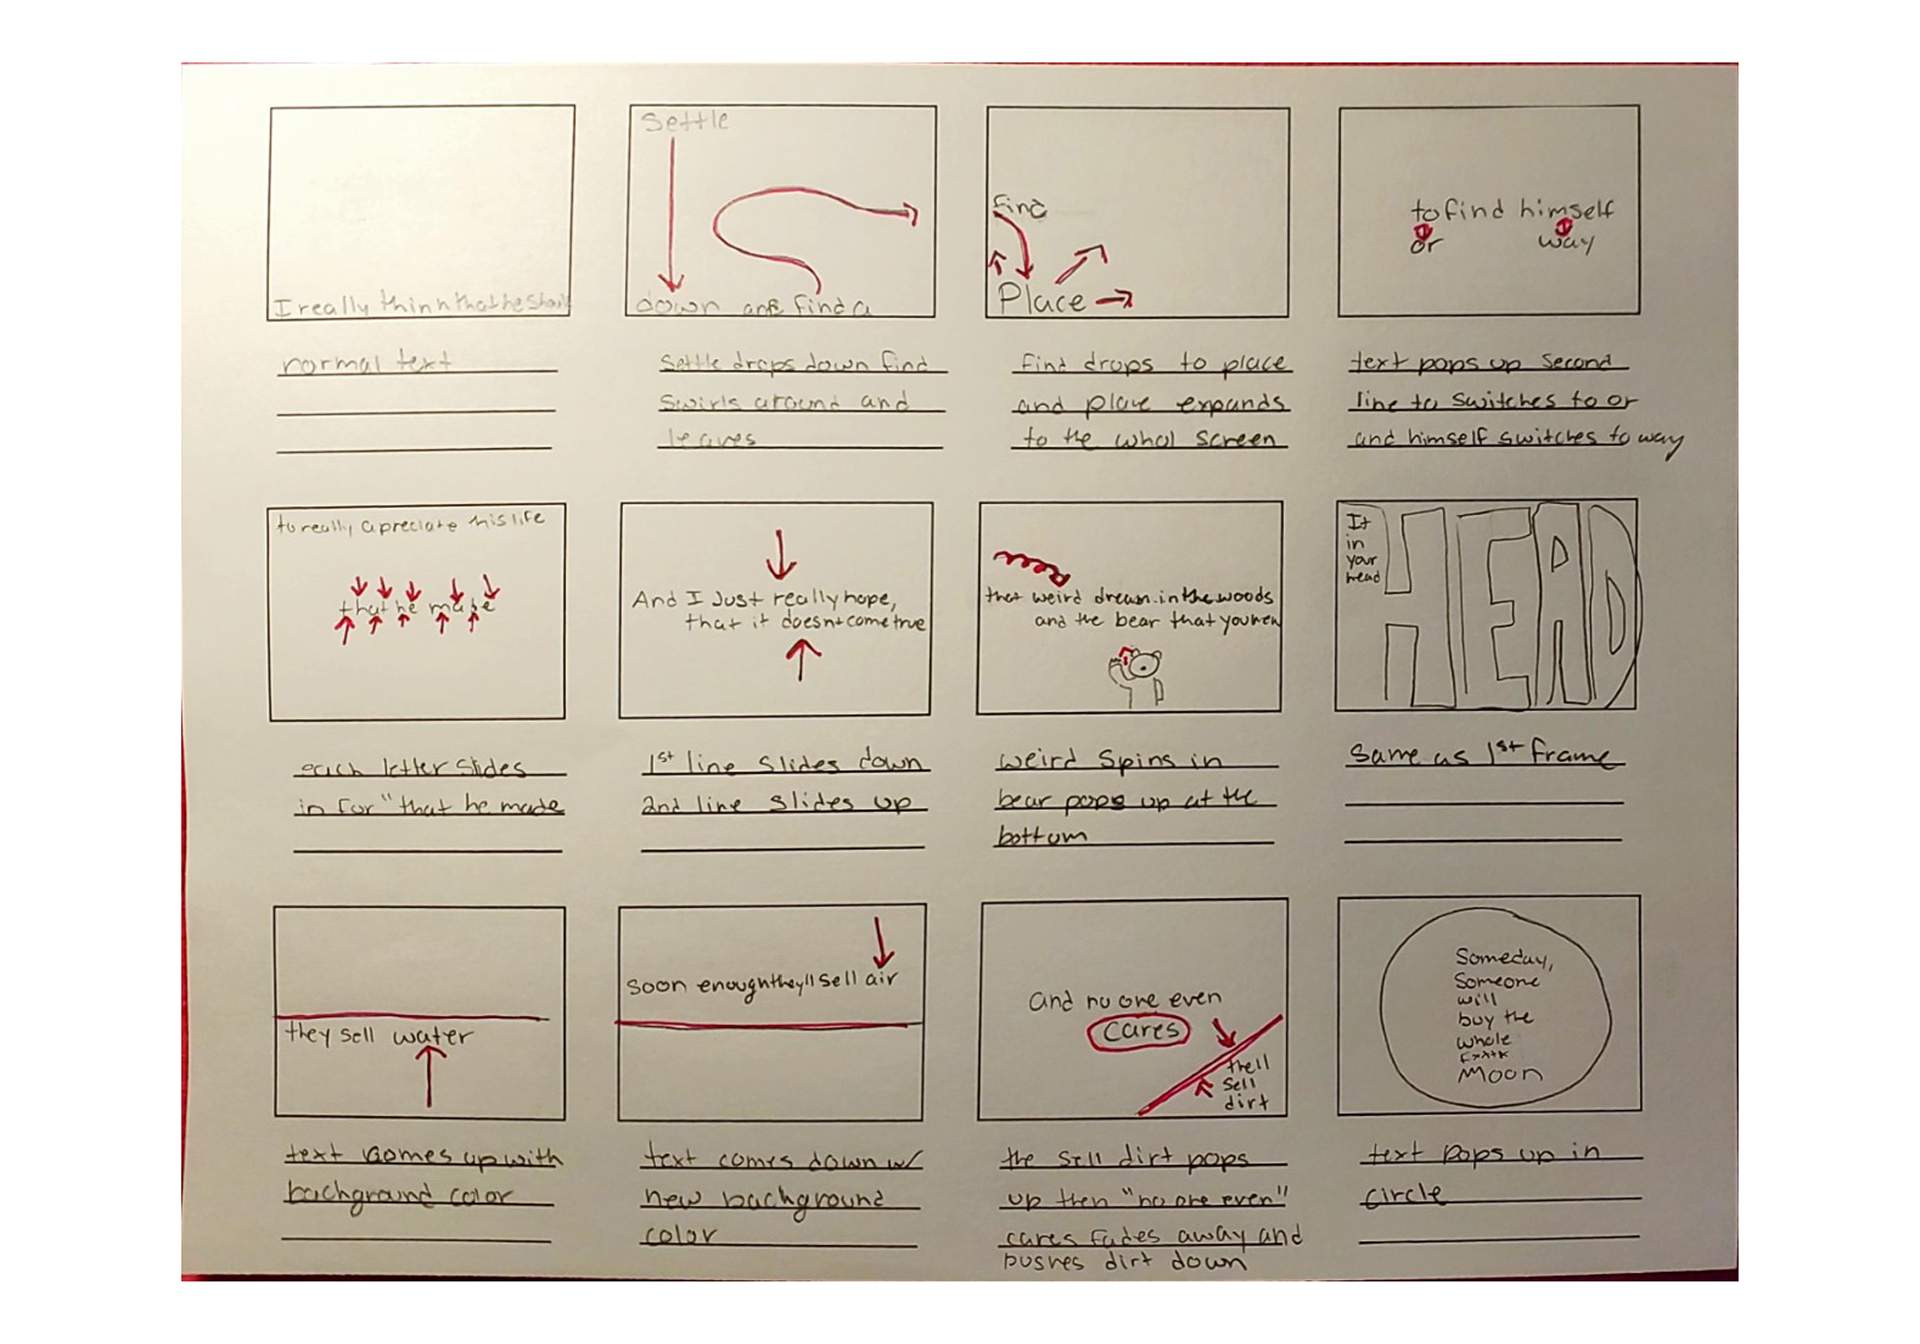 I really thinn that he should
normal text
Settle
down and find a
Settle drops down find
swirls around and
leaves
find
Place
find drops to place
and place expands
to the whol screen
to find himself
or way
text pops up second
line to switches to or
and himself switches to way
to really apreciate his life
that he made
each letter slides
in for "that he made
And I Just really hope,
that it doesnt come true
1st line slides down
2nd line slides up
that weird dream in the woods
and the bear that you
weird spins in
bear pops up at the
bottom
It
in
your
head
HEAD
same as 1st frame
they sell water
text comes up with
background color
soon enough they'll sell air
text comes down w/
new background
color
and no one even
cares
sell
dirt
the sell dirt pops
up then "no one even"
cares fades away and
pushes dirt down
Someday,
Someone
will
buy the
whole
Moon
text pops up in
circle